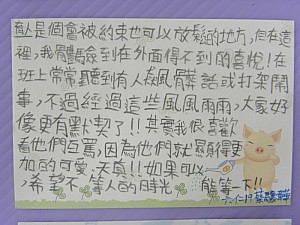 是個會被約束也可以放鬆的地方,但在這
裡,我體驗到在外面得不到的喜悅!在
班上常常聽到有人飆髒話或打架鬧
事,不過經過這些風風雨雨,大家好
像更有默契了!!其實我很喜歡
看他們互罵,因為他們就顯得更
加的可愛、天真!!如果可以
,希望不等人的時光,能等一下!!